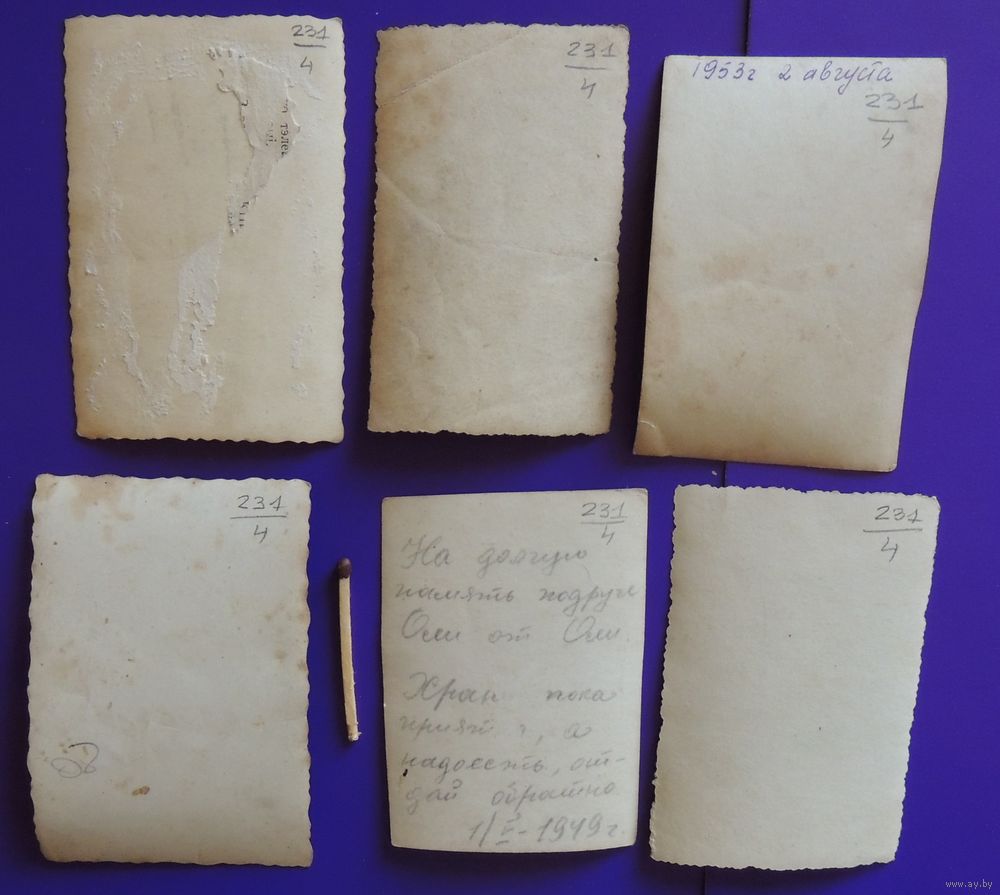 231
4
тэлег
231
4
1953г 2 августа
231
4
231
4
231
4
На долгую
память подруге
Оли от Оли.
Храни пока
приятно, а
надоесть, от-
дай обратно
1/V-1949г.
231
4
www.ay.by